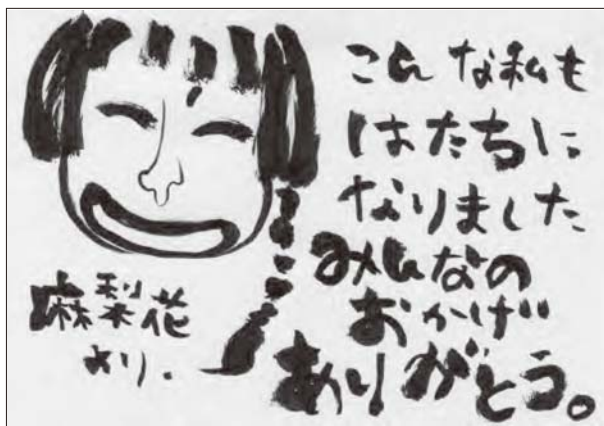 こんな私も
はたちに
なりました
みんなの
おかげ
ありがとう。
麻梨花
より.